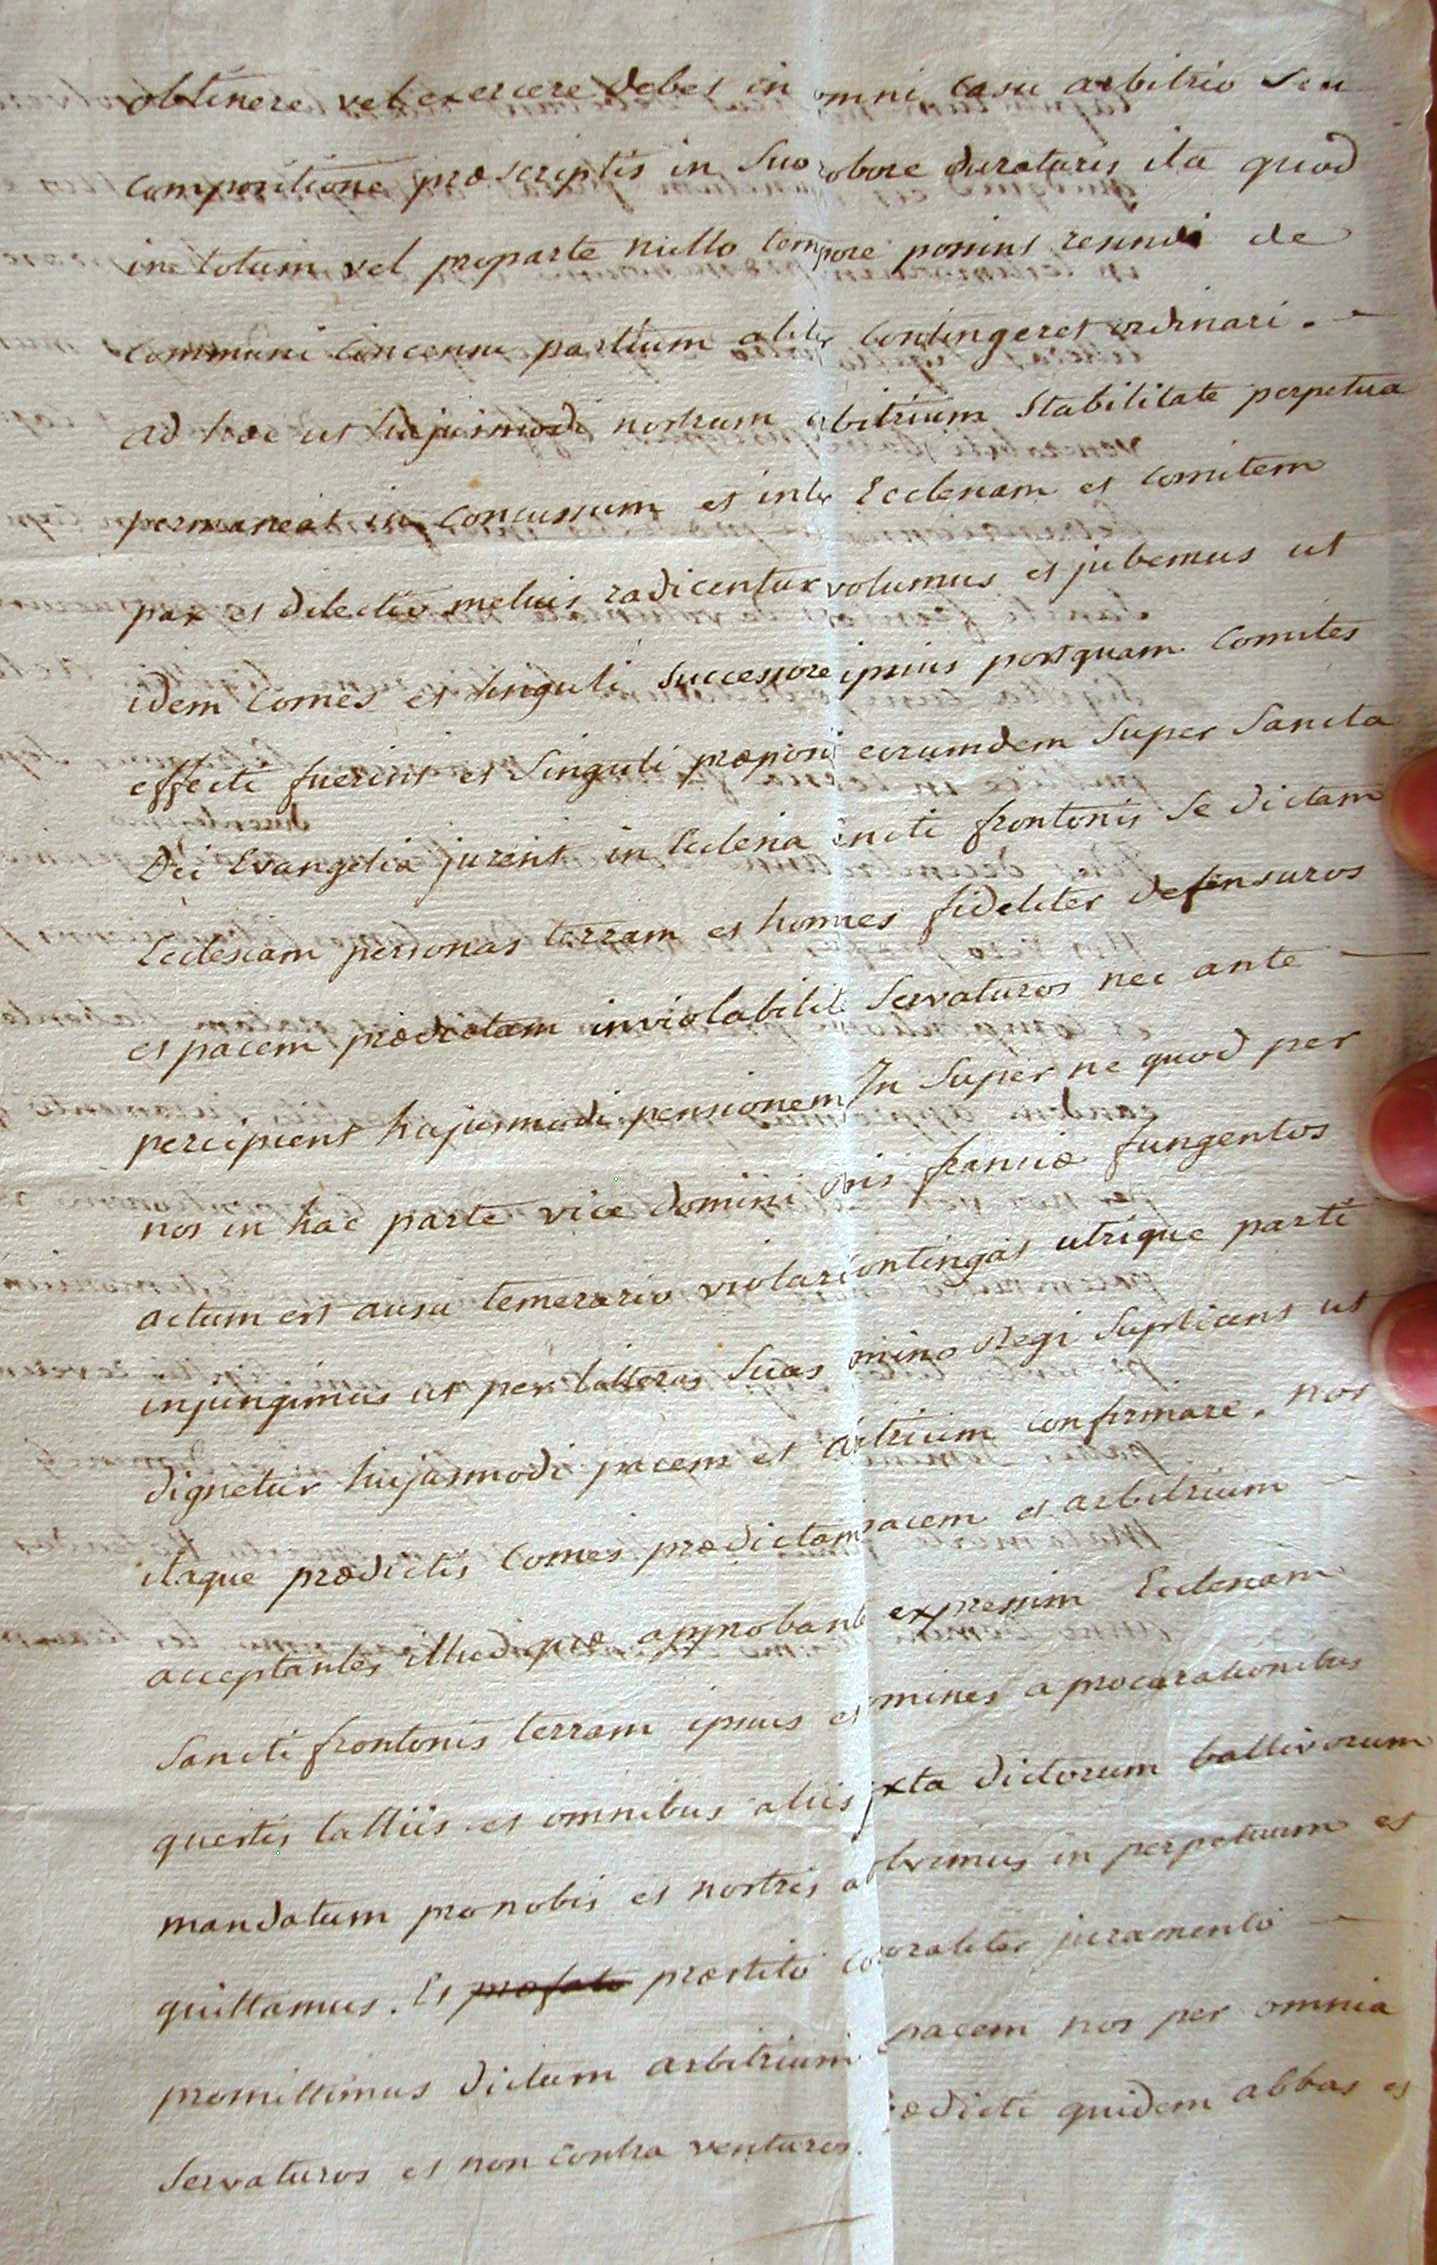 obtinere vel exercere debet in omni casu arbitrio seu
compositione præscriptis in suo robore duraturis ita quod
in totum vel proparte nullo tempore possint resindi de
communi concensu partium aliter contingeret ordinari. —
ad hoc ut hujusmodi nostrum arbitrium stabilitate perpetua
permaneat in concussum et inter Ecclesiam et comitem
pax et dilectio melius radicentur volumus et jubemus ut
idem comes et singuli successore ipsius postquam comites
effecti fuerint et singuli præposi eorumdem super sancta
Dei Evangelia jurent in Ecclesia sancti frontonis se dictam
Ecclesiam personas terram et homines fideliter defensuros
et pacem prædictam inviolabilit servaturos nec ante —
percipient hajusmodi pensionem In super ne quod per
nos in hac parte vice domini franciæ fungentos
actum est ausu temerario violari contingat utrique parti
injungimus ut per latteras suas domino Regi suplicent ut
dignetur hujusmodi pacem et arbitrium confirmare. nos
itaque prædictis comes prædictam pacem et arbitrium —
acceptantes illudquæ approbant expressim Ecclesiam
sancti frontonis terram ipsius et homines a procurationibus
questis talliis et omnibus aliis juxta dictorum ballivorum
mandatum pronobis et nostris absolvimus in perpetuum et
quittamus. Et præfato præstito corporaliter juramento —
promittimus dictum arbitrium pacem nos per omnia
servaturos et non contra venturos. prædicti quidem abbas et